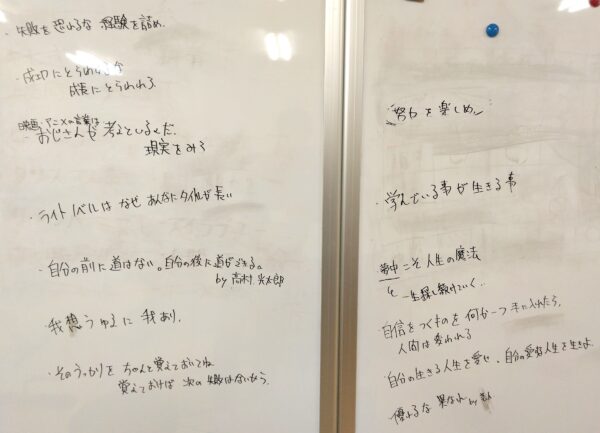 ・失敗を恐れるな 経験を詰め.
・成功にとらわれるな
成長にとらわれろ
映画・アニメの言葉は
おじさんが考えているんだ.
現実をみろ
・ライトノベルは なぜ あんなにタイトルが長い
・自分の前に道はない。自分の後に道ができる。
by 高村光太郎
・我想うゆえに 我あり.
・そのうっかりを ちゃんと覚えておいてね
覚えておけば 次の失敗はないから
「努力を楽しめ」
・学んでいる事が生きる事
夢中こそ人生の魔法
一生探し続けていく.
自信をつくものを何か一つ手に入れたら,
人間は変われる
自分の生きる人生を愛せ、自分の愛する人生を生きよ
優れるな 異なれ by